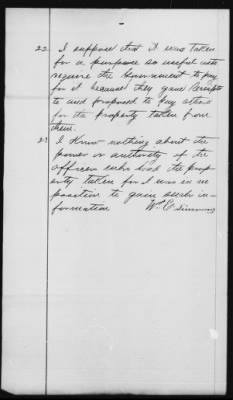 22 I suppose that it was taken
for a purpose so useful as to
require the Government to pay
for it because they gave receipts
to and proposed to pay others
for the property taken from
them.
23 I know nothing about the
power or authority of the
officers who had the prop-
erty taken for I was in no
position to gain such in-
formation Wm. E. Simmons